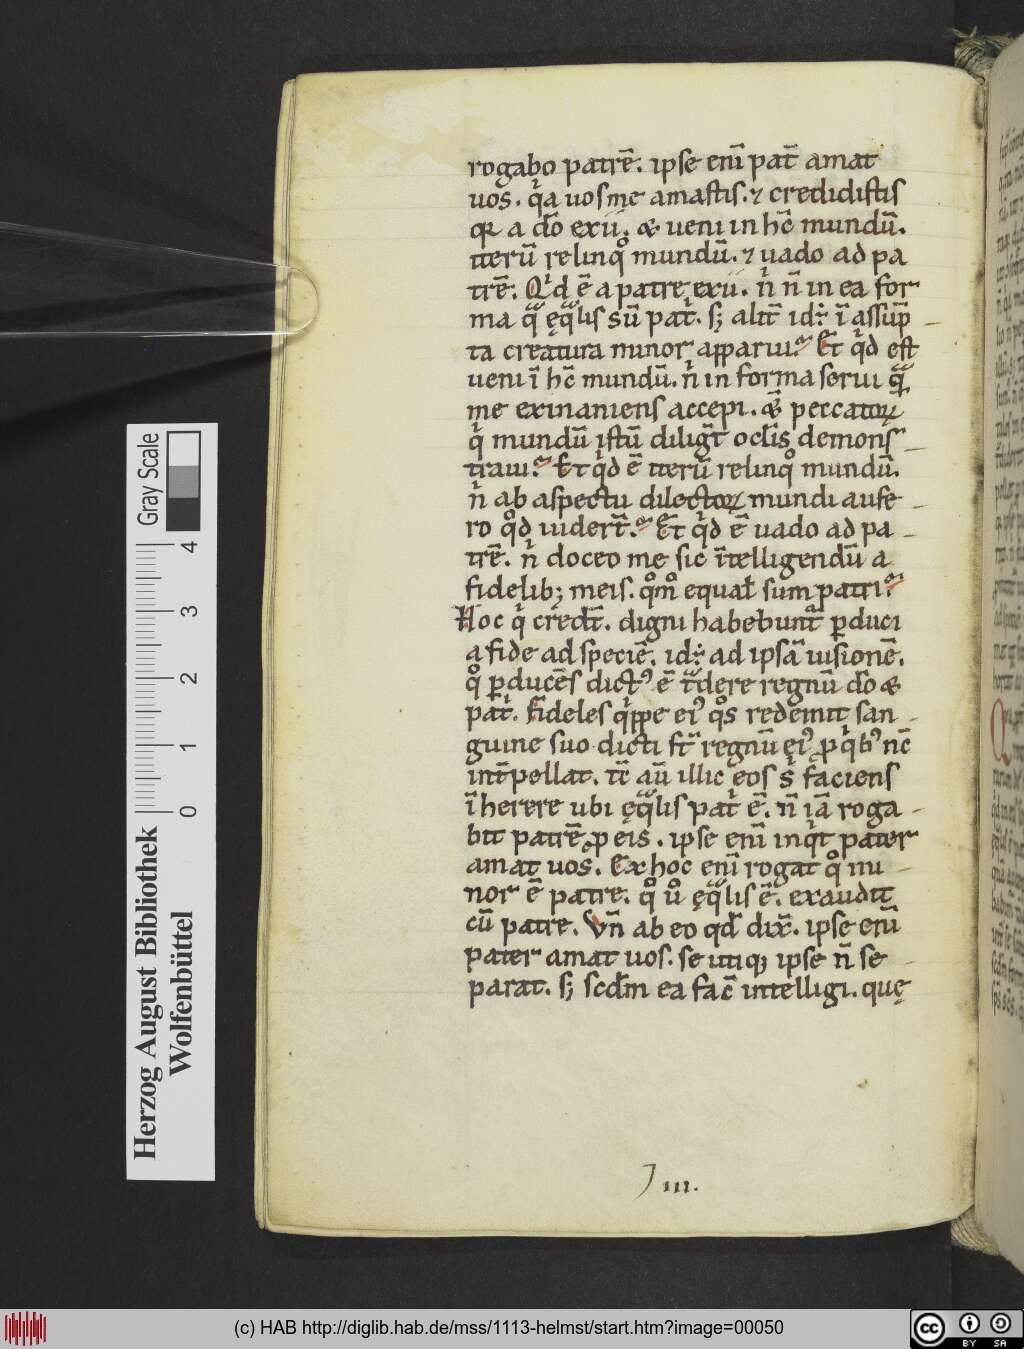 rogabo patrē. ipse enī pat̄ amat
uos. q̓a uos me amastis. ⁊ credidistis
qꝛ a dō exii. & ueni in hc̄ mundū.
iterū relinqͦ mundū. ⁊ uado ad pa
trē. Qͥd ē a patre exii. n̓ n̄ in ea for
ma qͣ ęqͣlis sū pat̓. sꝫ alit̄ id. ī assūp
ta creatura minor apparui. Et qͥd est
ueni ī hc̄ mundū. n̓ in forma serui qͣ
me exinaniens accepi. & peccatoꝝ
qͥ mundū istū diligt̄ oclīs demons
traui. Et qͥd ē iterū relinqͦ mundū.
n̓ ab aspectu dilectoꝝ mundi aufe
ro qͦd uidert̄. Et qͥd ē uado ad pa
trē. n̓ doceo me sic ītelligendū a
fidelibꝫ meis. qͦm̄ equał sum patri.
Hoc qͥ credt̄. digni habebunt̄ ꝑduci
a fide ad speciē. id. ad ipsā uisionē.
qͦ ꝑducēs dictꝰ ē tͣdere regnū dō &
pat̓. Fideles qͥppe eiꝰ qͦs redemit san
guine suo dicti st̄ regnū ęiꝰ ꝓ qͥbꝰ nc̄
int̄pellat. tc̄ aū illic eos s̓ faciens
īherere ubi ęqͣlis pat̓ ē. n̄ iā roga
bit patrē ꝓ eis. ipse enī inqͥt pater
amat uos. Ex hoc enī rogat qͦ mi
nor ē patre. qͦ ů ęqͣlis ē. exaudit
cū patre. Vn̄ ab eo qd̄ dix̄. ipse enī
pater amat uos. se utiqꝫ ipse n̄ se
parat. sꝫ scd̄m ea fac̄ intelligi. quę
III.
Herzog August Bibliothek
Wolfenbüttel
0 1 2 3 4
Gray Scale
(c) HAB http://diglib.hab.de/mss/1113-helmst/start.htm?image=00050
cc BY SA